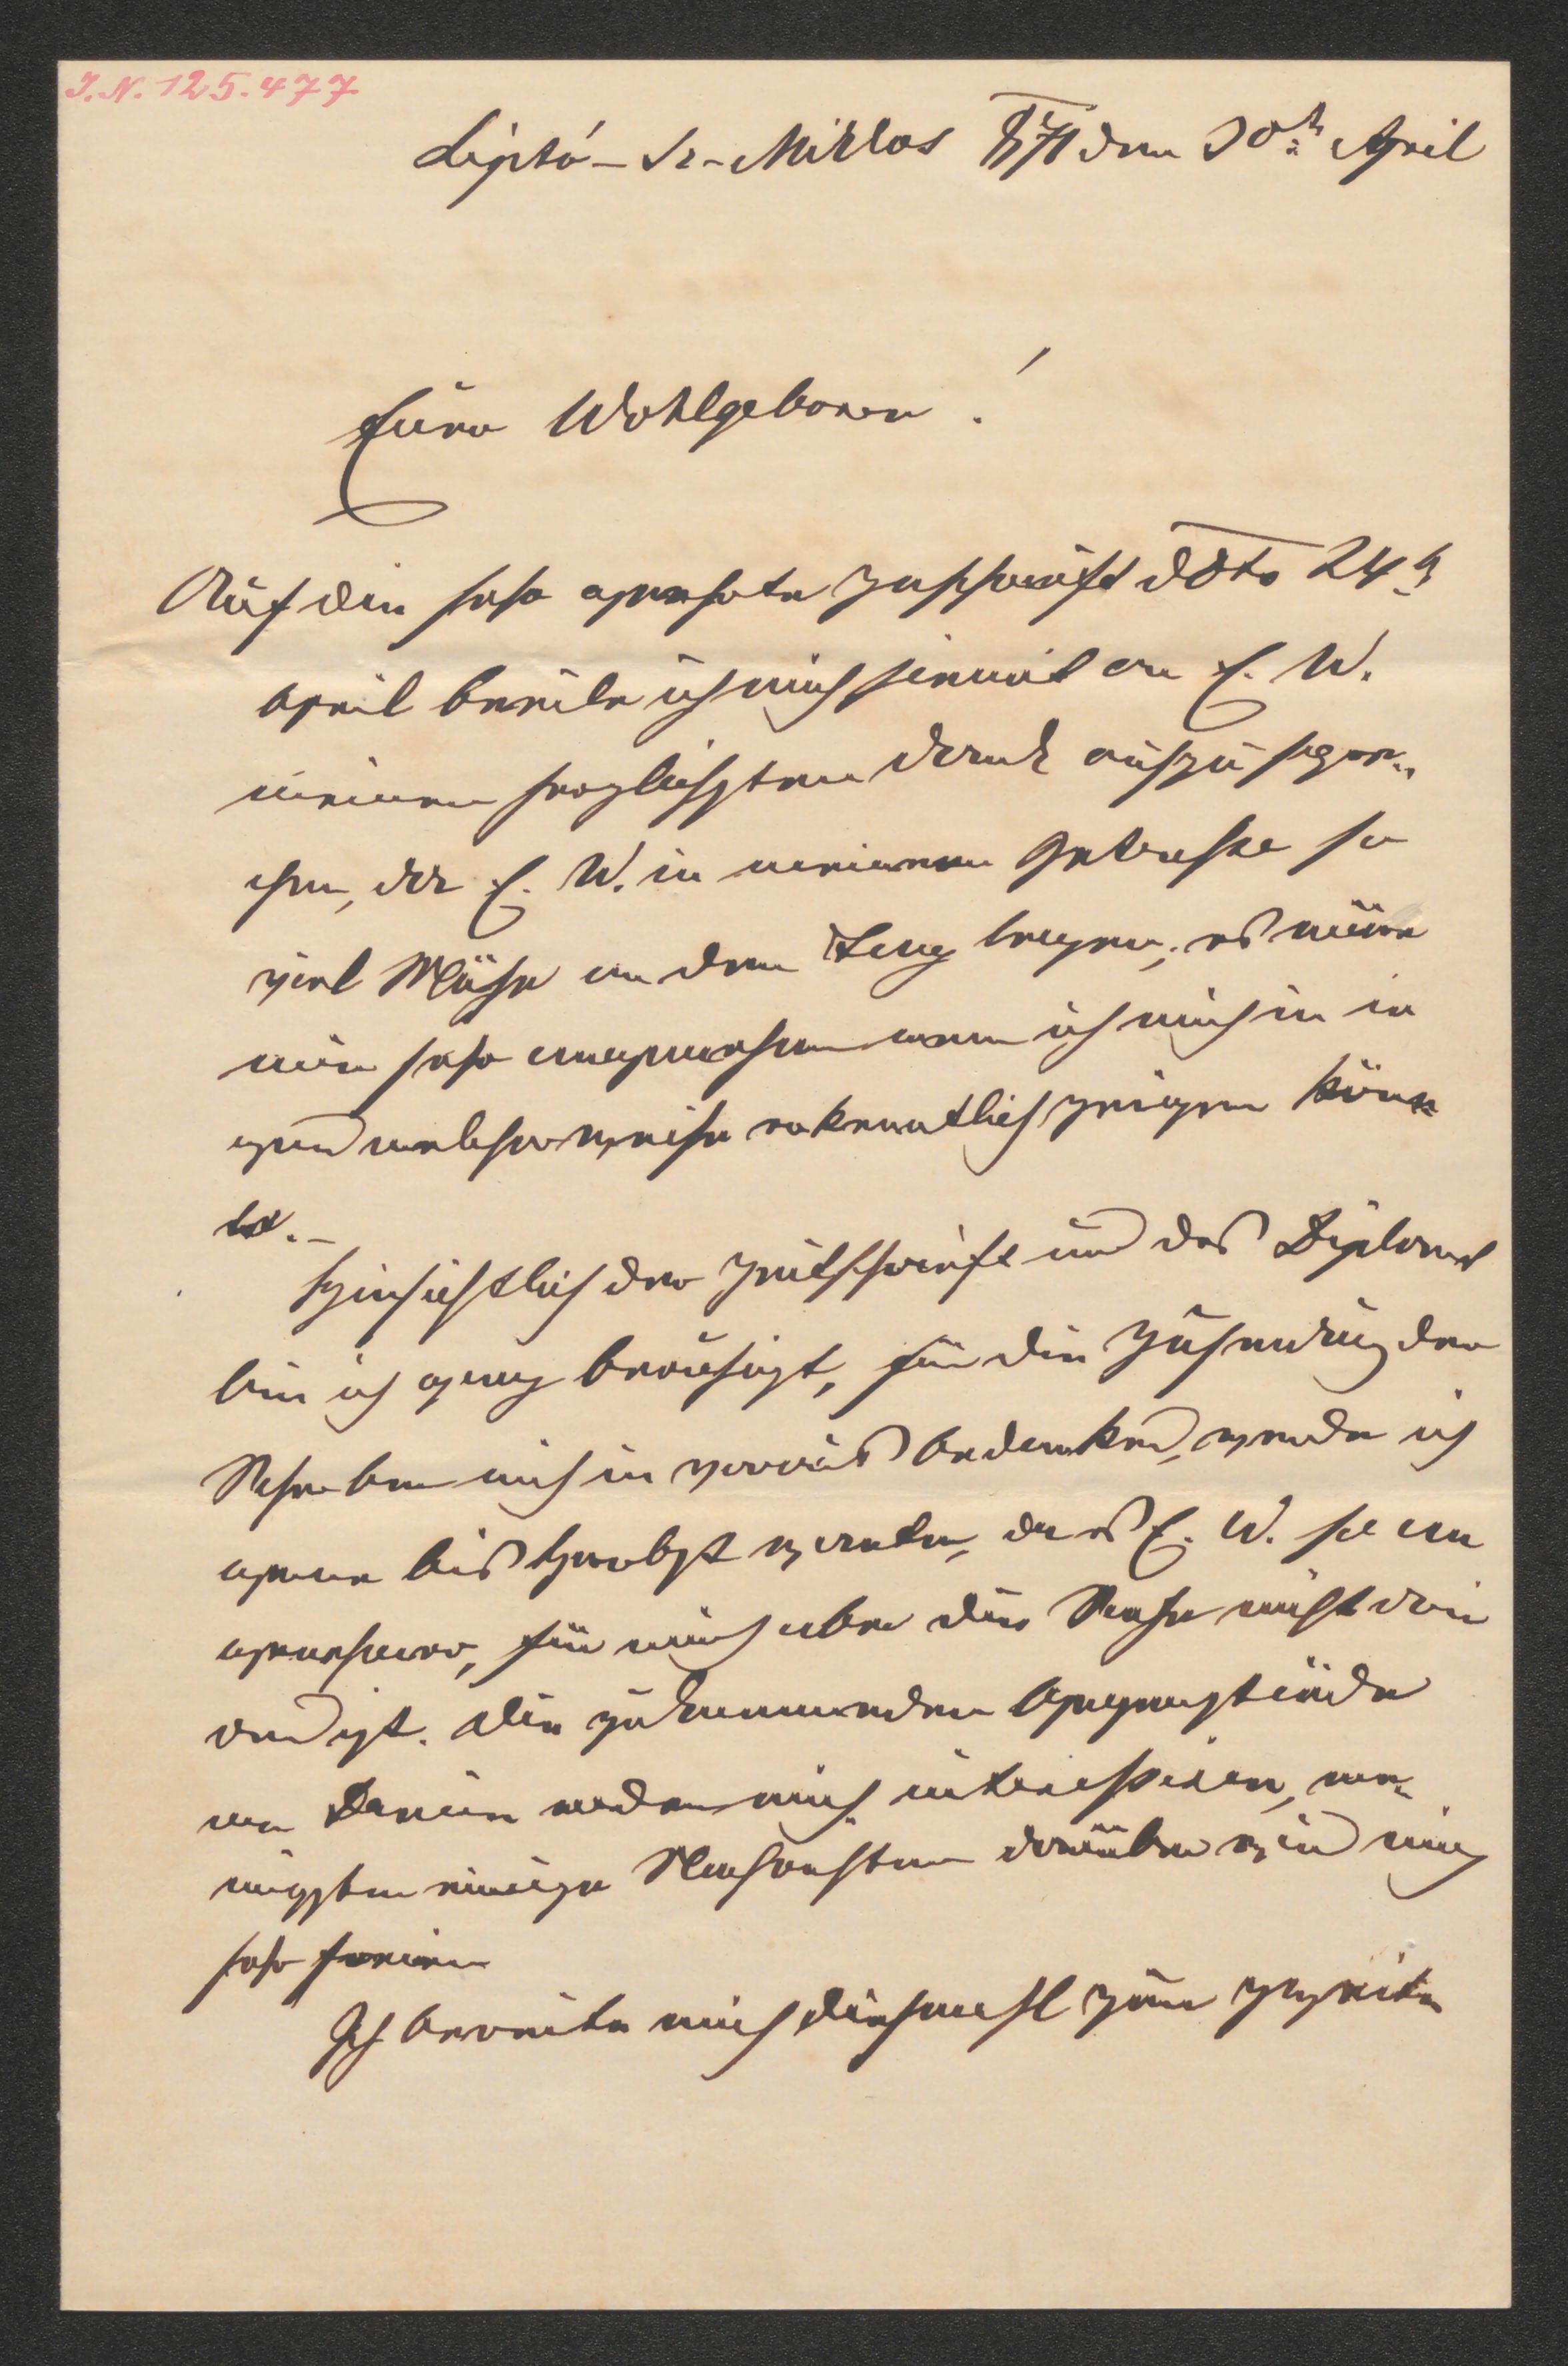 I.N. 125.477
Liptó-Sz-Miklos 871 den 30t. April
Eüer Wohlgeboren!
Auf die sehr geehrte Zuschrift ddto 24t.
April beeile ich mich hiemit an E. W.
meinen herzlichsten Dank auszuspre-
chen, das E. W. in meinem Interesse so
viel Mühe an den Tag legen, es wäre
mir sehr angenehm wenn ich mich in ir
gend welcher weise erkenntlich zeigen könn
te. –
Hinsichtlich der Zeitschrift und des Diploms
bin ich ganz beruhigt, für die Zusendung der
mich in voraus bedankend, werde ich
gerne bis Herbst warten, da es E. W. so an
genehmer, für mich aber die Sache nicht drin
gend ist. Die zukommenden Gegenstände
von werden mich interessiren, we-
nigsten einige Nachrichten darüber wird mich
sehr freuen
Ich bereite mich diesmal zur zweiten